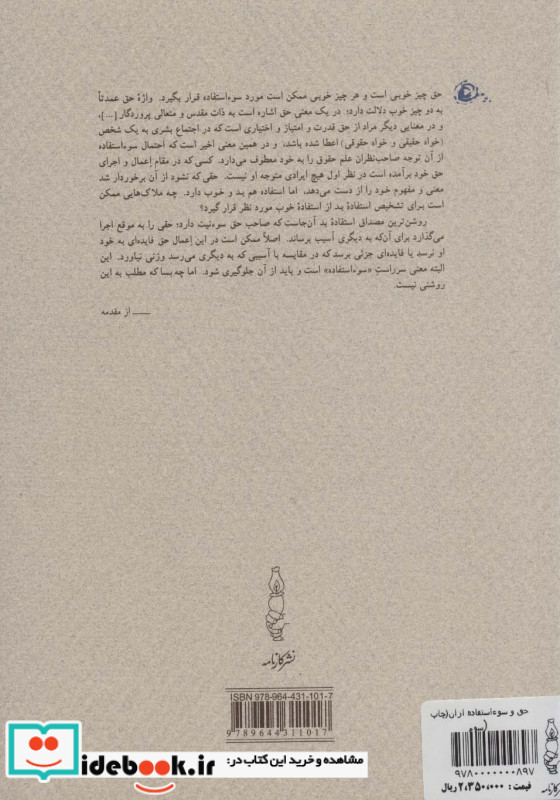 حق چیز خوبی است و هر چیز خوبی ممکن است مورد سوءاستفاده قرار بگیرد. واژهٔ حق عمدتاً
به دو چیز خوب دلالت دارد؛ در یک معنی حق اشاره است به ذات مقدس و متعالی پروردگار [...]،
و در معنایی دیگر مراد از حق قدرت و امتیاز و اختیاری است که در اجتماع بشری به یک شخص
(خواه حقیقی و خواه حقوقی) اعطا شده باشد، و در همین معنی اخیر است که احتمال سوءاستفاده
از آن توجه صاحب‌نظران علم حقوق را به خود معطوف می‌دارد. کسی که در مقام اِعمال و اجرای
حق خود برآمده است در نظر اول هیچ ایرادی متوجه او نیست. حقی که نشود از آن برخوردار شد
معنی و مفهوم خود را از دست می‌دهد، اما استفاده هم بد و خوب دارد. چه ملاک‌هایی ممکن
است برای تشخیص استفادهٔ بد از استفادهٔ خوب مورد نظر قرار گیرد؟
روشن‌ترین مصداق استفادهٔ بد آن‌جاست که صاحب حق سوءنیت دارد؛ حقی را به موقع اجرا
می‌گذارد برای آن‌که به دیگری آسیب برساند. اصلاً ممکن است در این اِعمال حق فایده‌ای به خود
او نرسد یا فایده‌ای جزئی برسد که در مقایسه با آسیبی که به دیگری می‌رسد وزنی نیاورد. این
البته معنی سرراستِ «سوءاستفاده» است و باید از آن جلوگیری شود. اما چه بسا که مطلب به این
روشنی نیست.
— از مقدمه
نشر کارنامه
ISBN 978-964-431-101-7
9 789644 311017
حق و سوءاستفاده ازآن(چاپ
سوم)
۹۷۸۰۰۰۰۰۰۰۸۹۷
قیمت: ۲،۳۵۰،۰۰۰ ریال
کارنامه
مشاهده و خرید این کتاب در:
idebook.ir